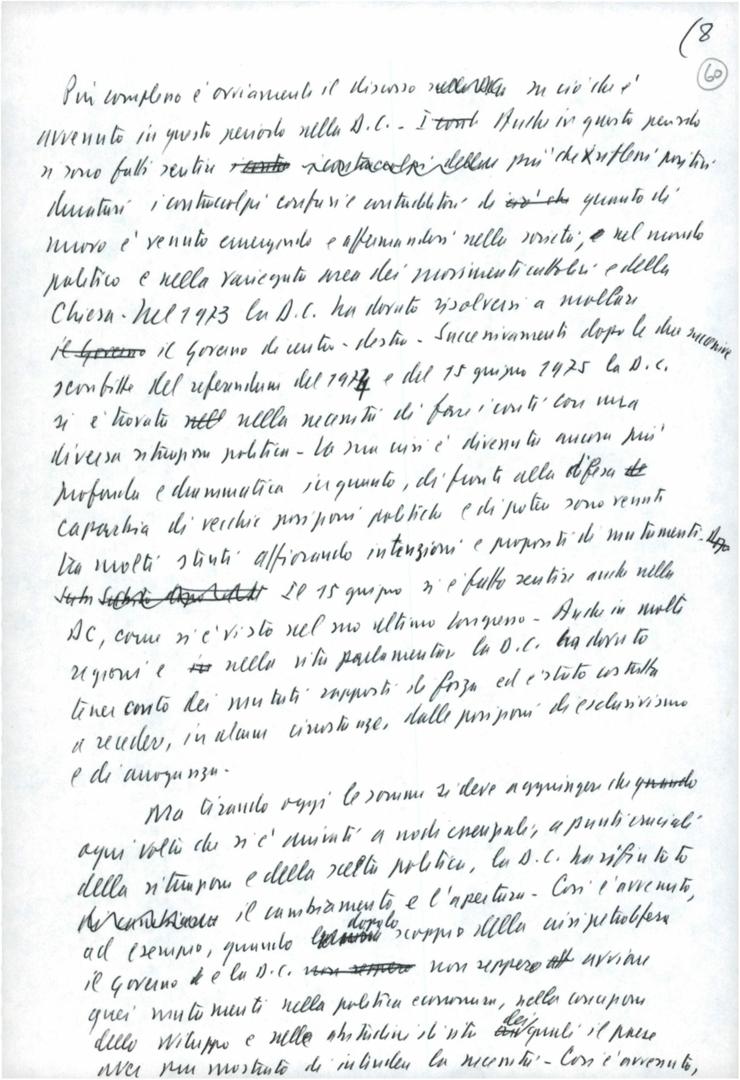 (8
60
Più complesso è ovviamente il discorso su ciò che è
avvenuto in questo periodo nella D.C. - Anche in questo periodo
si sono fatti sentire più che riflessi positivi
duraturi i contraccolpi confusi e contraddittori di quanto di
nuovo è venuto emergendo e affermandosi nella società, e nel mondo
politico e nella variegata area dei movimenti cattolici e della
Chiesa - Nel 1973 la D.C. ha dovuto risolversi a mollare
il Governo il Governo di centro-destra - Successivamente dopo le due successive
sconfitte del referendum del 1974 e del 15 giugno 1975 la D.C.
si è trovata nell nella necessità di fare i conti con una
diversa situazione politica - La sua crisi è divenuta ancora più
profonda e drammatica in quanto, di fronte alla difesa de
caparbia di vecchie posizioni politiche e di potere sono venuti
tra molti stenti affiorando intenzioni e propositi di mutamenti -
Il 15 giugno si è fatto sentire anche nella
DC, come si è visto nel suo ultimo Congresso - Anche in molte
regioni e in nella vita parlamentare la D.C. ha dovuto
tener conto dei mutati rapporti di forza ed è stata costretta
a recedere, in alcune circostanze, dalle posizioni di esclusivismo
e di arroganza -
Ma tirando oggi le somme si deve aggiungere che quando
ogni volta che si è arrivati a nodi essenziali, a punti cruciali
della situazione e della scelta politica, la D.C. ha rifiutato
il cambiamento e l'apertura - Così è avvenuto,
ad esempio, quando dopo lo scoppio della crisi petrolifera
il Governo e la D.C. non seppero non seppero avviare
quei mutamenti nella politica economica, nella concezione
dello sviluppo e nelle abitudini di vita dei quali il paese
pur mostrato di intendere la necessità - Così è avvenuto,